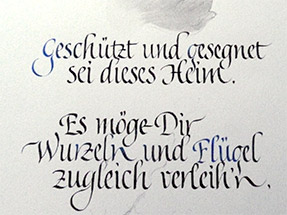 Geschützt und gesegnet
sei dieses Heim.
Es möge Dir
Wurzeln und Flügel
zugleich verleih'n.